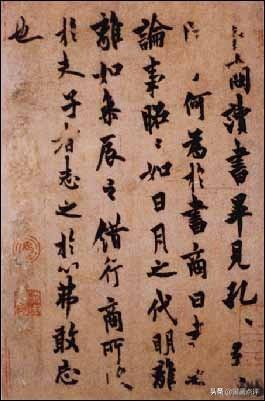 商讀書畢見孔〻子
何為於書商曰書
論事昭〻如日月之代明離
離如參辰之錯行商所
於夫子者志之於心弗敢忘
也
头条